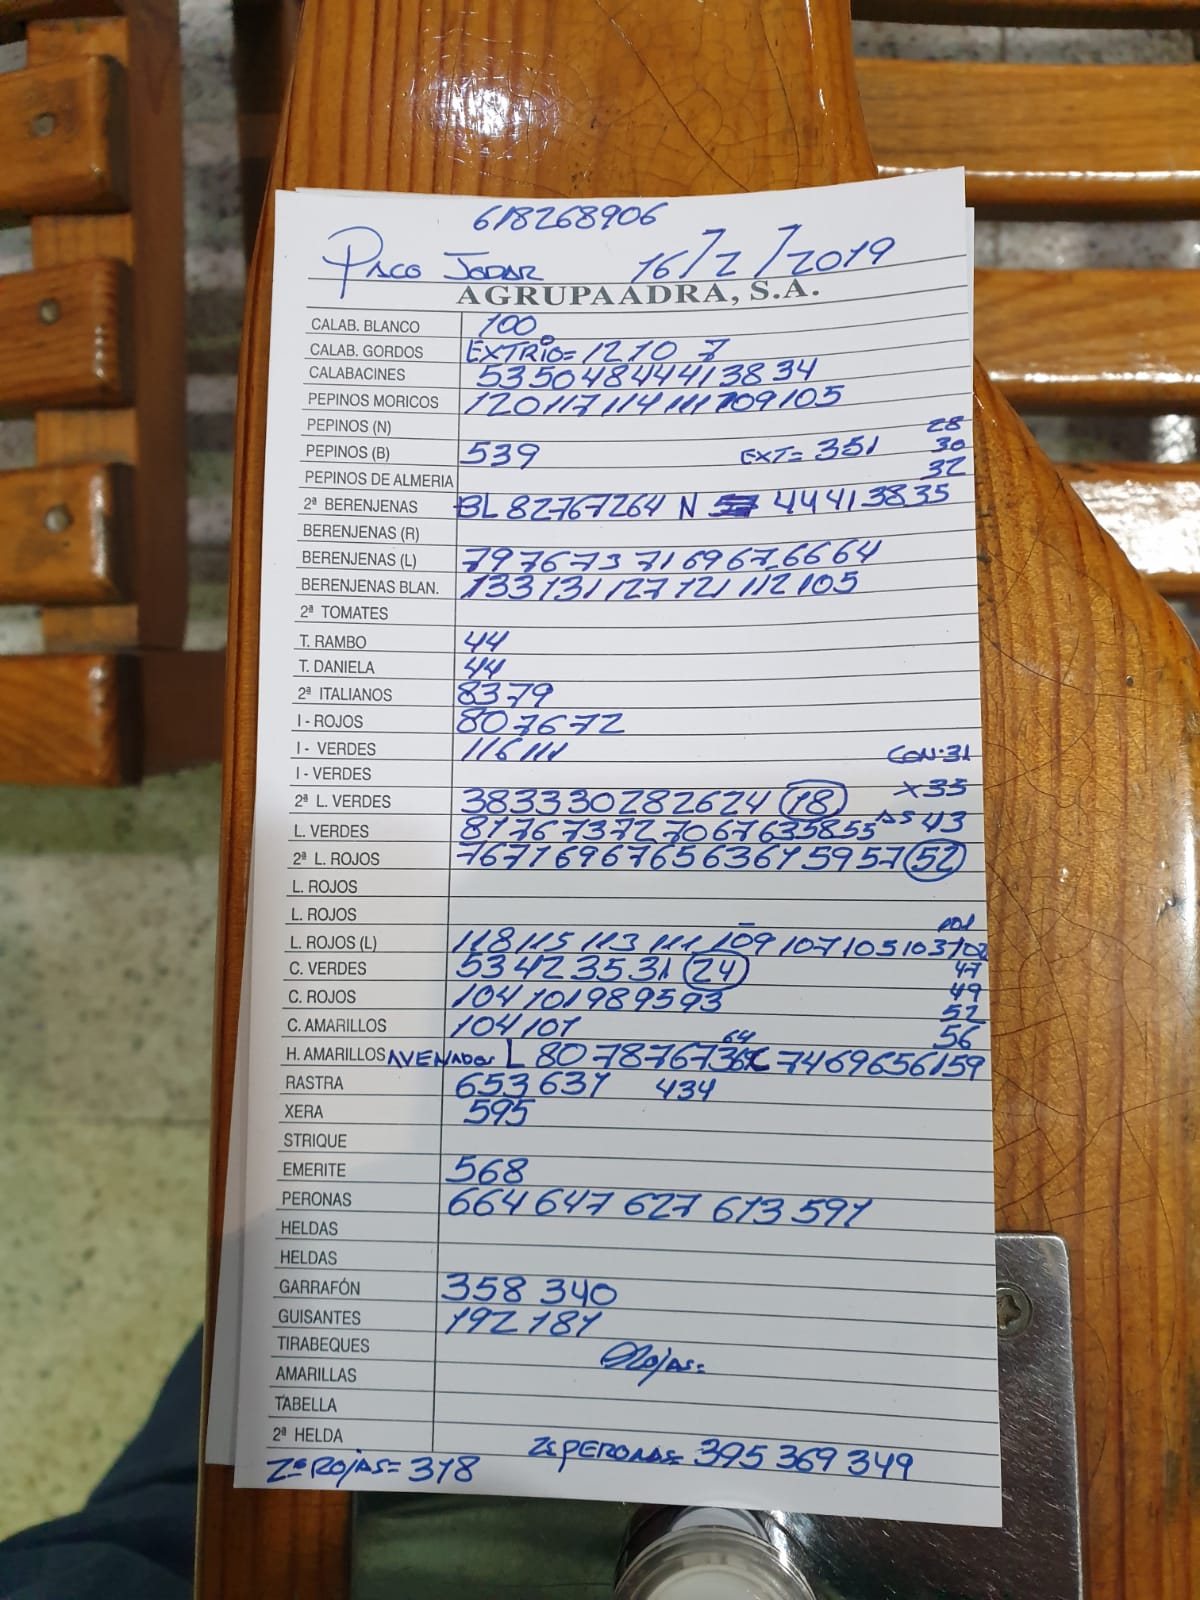 618268906
Paco Jodar 16/2/2019
AGRUPAADRA, S.A.
CALAB. BLANCO 100
CALAB. GORDOS EXTRIO= 12 10 7
CALABACINES 53 50 48 44 41 38 34
PEPINOS MORICOS 120 117 114 111 109 105
PEPINOS (N) 28
PEPINOS (B) 539 EXT= 351 30
PEPINOS DE ALMERIA 32
2ª BERENJENAS BL 82 76 72 64 N 44 41 38 35
BERENJENAS (R)
BERENJENAS (L) 79 76 73 71 69 67 66 64
BERENJENAS BLAN. 133 131 127 121 112 105
2ª TOMATES
T. RAMBO 44
T. DANIELA 44
2ª ITALIANOS 83 79
I - ROJOS 80 76 72
I - VERDES 116 111 CON·31
I - VERDES X 35
2ª L. VERDES 38 33 30 28 26 24 18
L. VERDES 81 76 73 72 70 67 63 58 55 AS 43
2ª L. ROJOS 76 71 69 67 65 63 61 59 57 52
L. ROJOS
L. ROJOS 101
L. ROJOS (L) 118 115 113 111 109 107 105 103 102
C. VERDES 53 42 35 31 24 47
C. ROJOS 104 101 98 95 93 49
52
C. AMARILLOS 104 101 56
64
H. AMARILLOS L 80 78 76 73 74 69 65 61 59
RASTRA 653 631 434
XERA 595
STRIQUE
EMERITE 568
PERONAS 664 647 627 613 591
HELDAS
HELDAS
GARRAFÓN 358 340
GUISANTES 192 181
TIRABEQUES
AMARILLAS
TABELLA
2ª HELDA
2ª PERONAS= 395 369 349
2ª ROJAS= 318